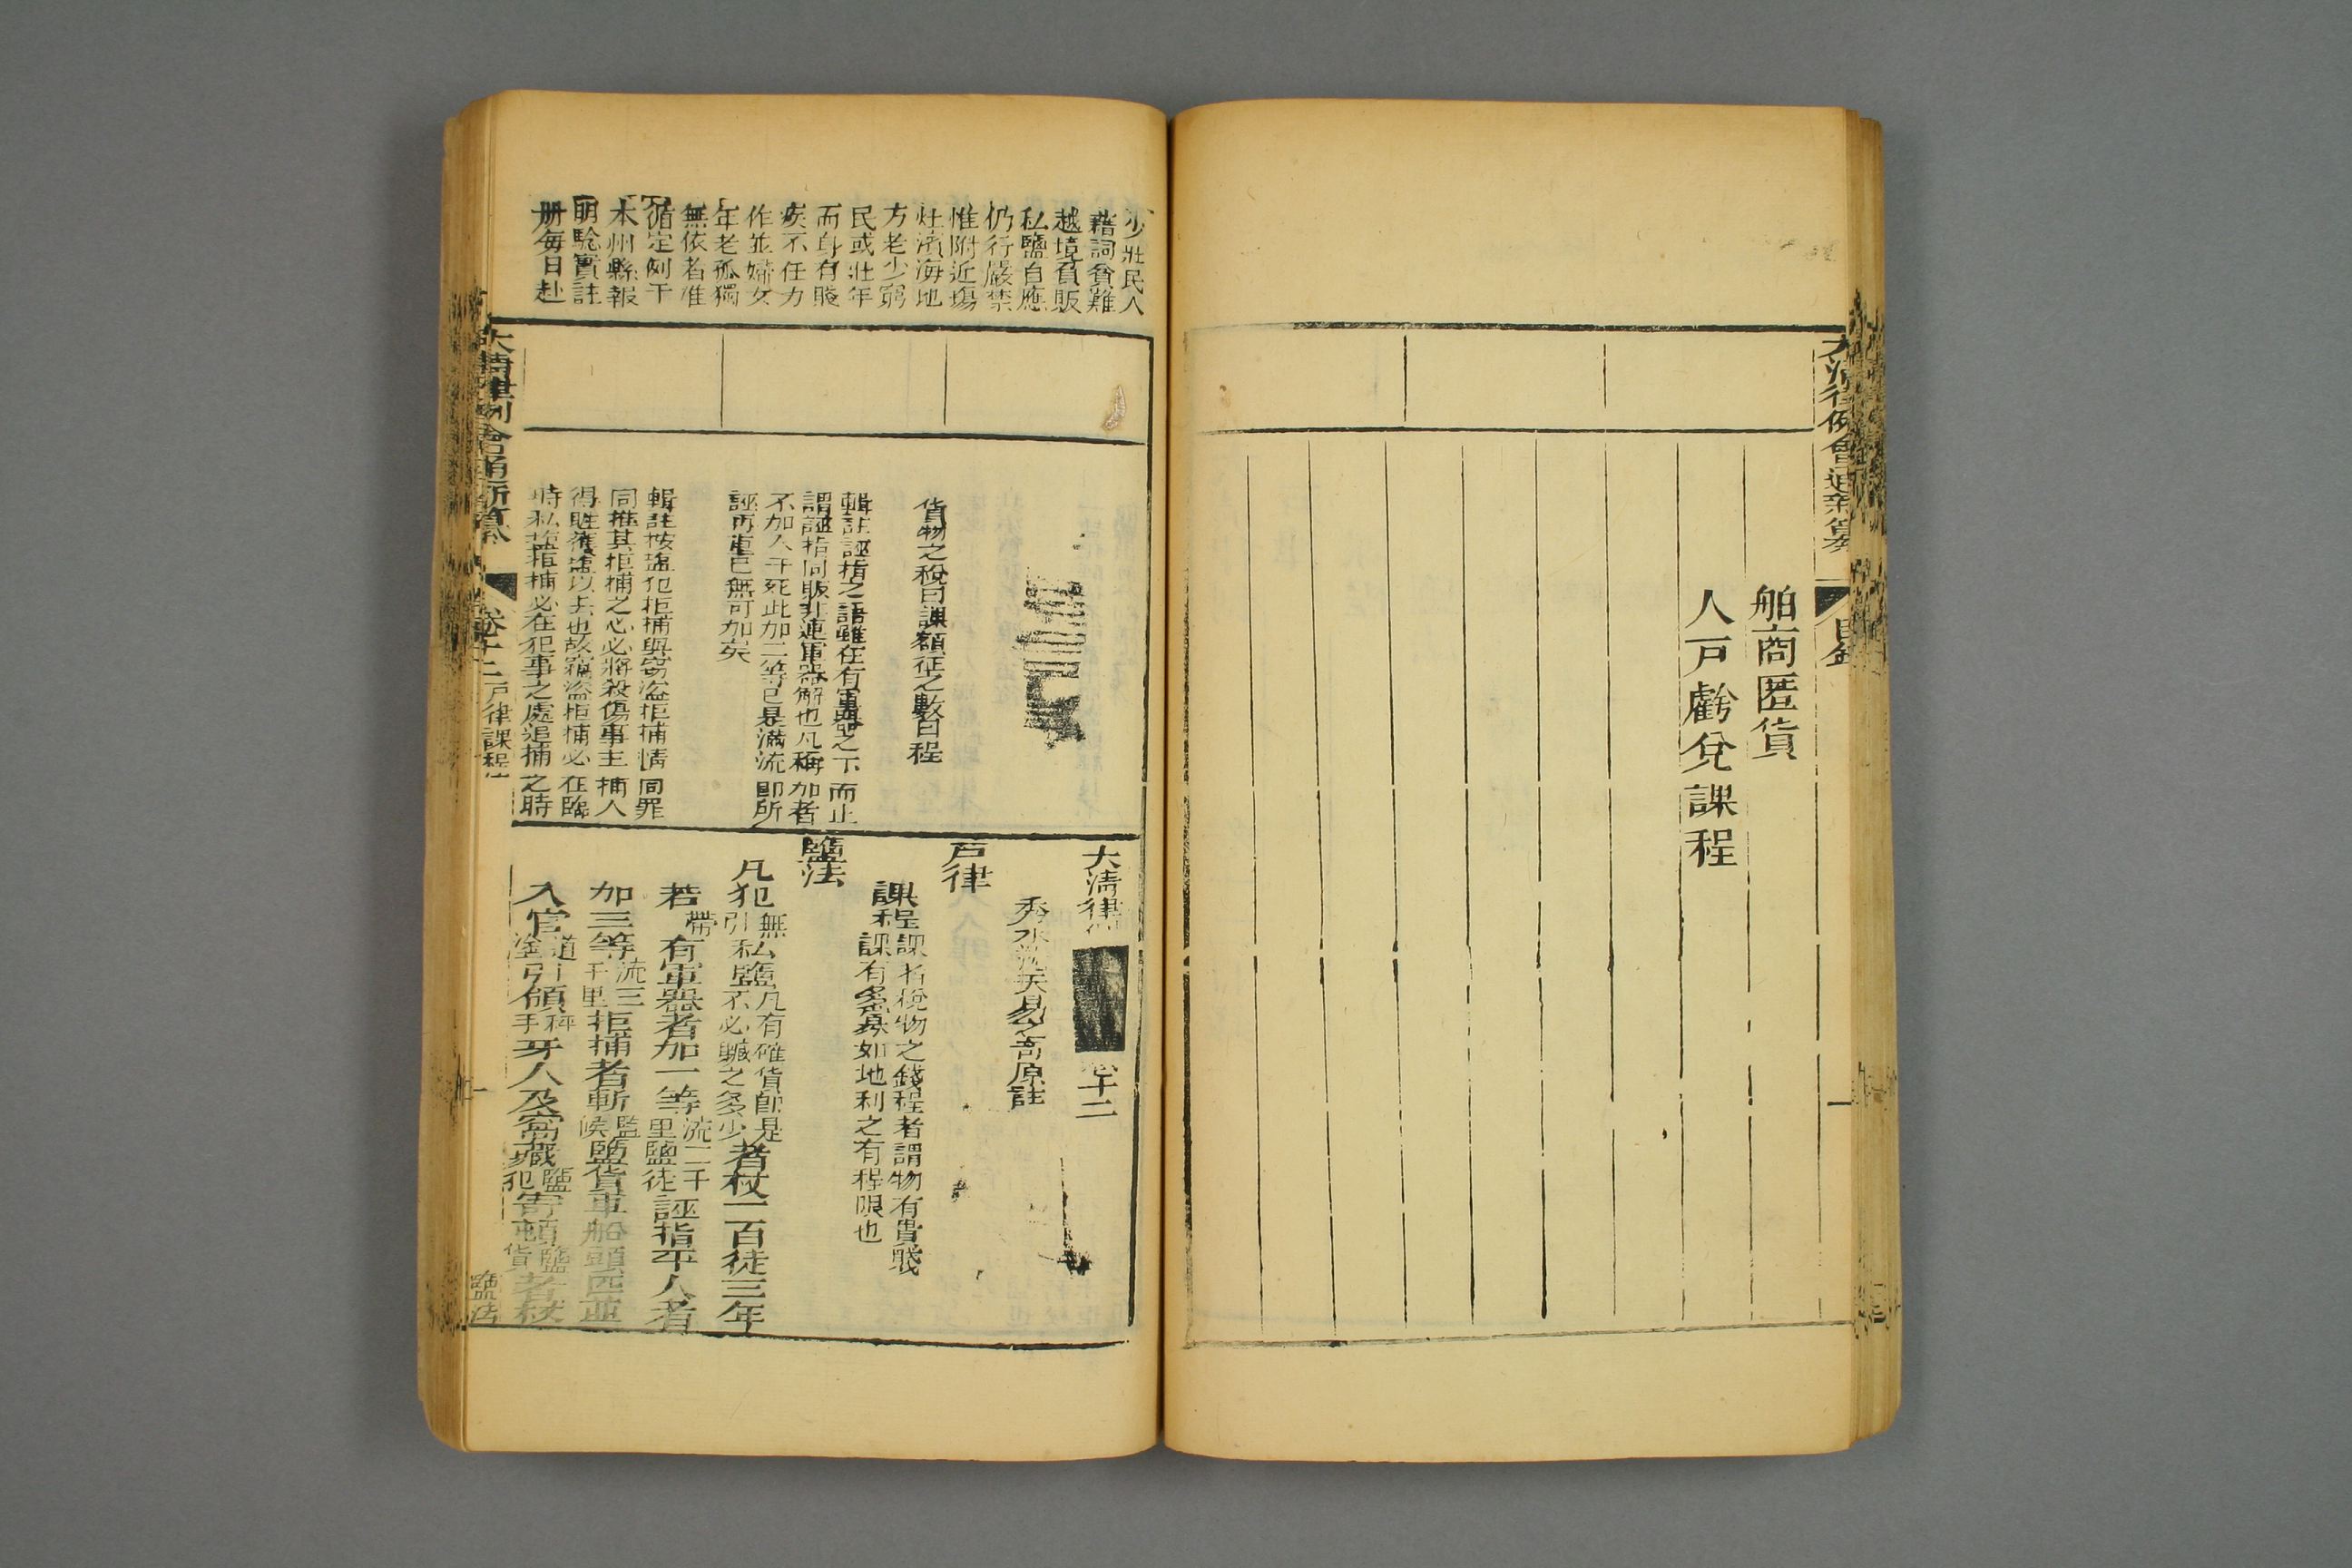 舶商匿貨
人戸虧兌課程
目錄
少壯民人
藉詞貧難
越境負販
私鹽自應
仍行嚴禁
惟附近塲
灶濱海地
方老少窮
民或壯年
而身有殘
疾不任力
作並婦女
年老孤獨
無依者准
循定例于
本州縣報
明騐實註
册每日赴
貨物之稅曰課額征之數曰程
輯註誣指之語雖在有軍器之下而止
謂誣指同販非連軍器解也凡稱加者
不加入于死此加二等已是滿流即所
誣再重已無可加矣
輯註按鹽犯拒捕與窃盗拒捕情同罪
同推其拒捕之心必將殺傷事主捕人
得脏獲遠以去也故竊盗拒捕必在臨
時私塩拒捕必在犯事之處追捕之時
大清律 卷十二
秀水沈天易之甫原註
戸律
課程課者稅物之錢程者謂物有貴賤
課有多寡如地利之有程限也
鹽法
凡犯無引私鹽凡有確貨即是不必贓之多少者杖一百徒三年
若帶有軍器者加一等流二千里鹽徒誣指平人者
加三等流三千里拒捕者斬監候鹽貨車船頭匹並
入官道塗引領秤手牙人及窩藏鹽犯寄頓鹽貨者杖
大清律例會通新纂 卷十二戸律課程 一 鹽法